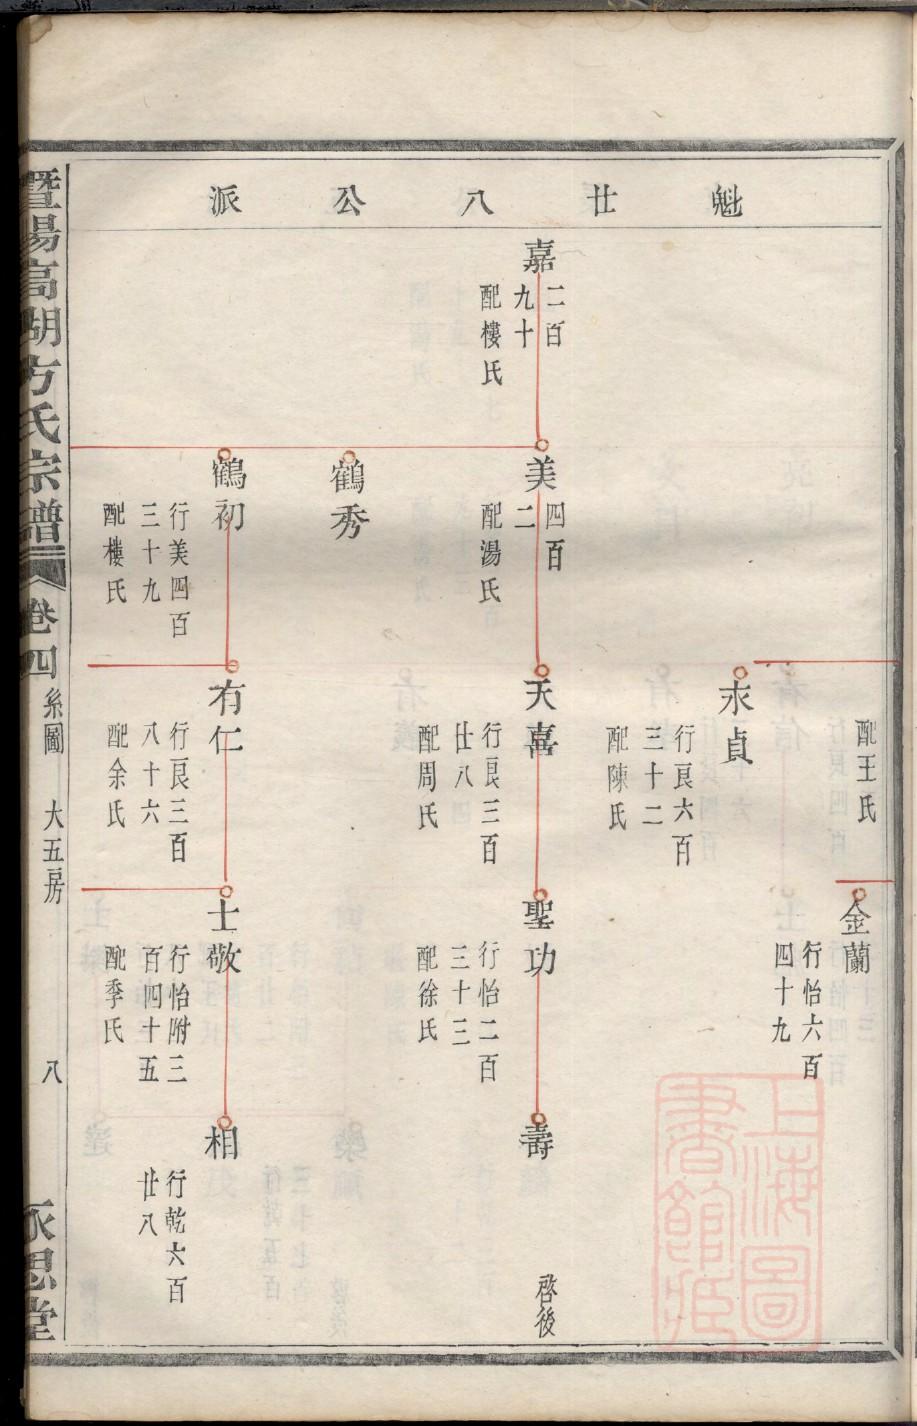 魁廿八公派
配王氏
金蘭
行怡六百
四十九
永貞
行良六百
三十二
配陳氏
嘉
二百
九十
配樓氏
美
四百
二
配湯氏
天喜
行良三百
廿八
配周氏
聖功
行怡二百
三十三
配徐氏
壽
啓後
鶴秀
鶴初
行美四百
三十九
配樓氏
有仁
行良三百
八十六
配余氏
士敬
行怡附三
百四十五
配季氏
相
行乾六百
廿八
暨陽高湖方氏宗譜
卷四
系圖
大五房
八
永思堂
上海圖
書館藏